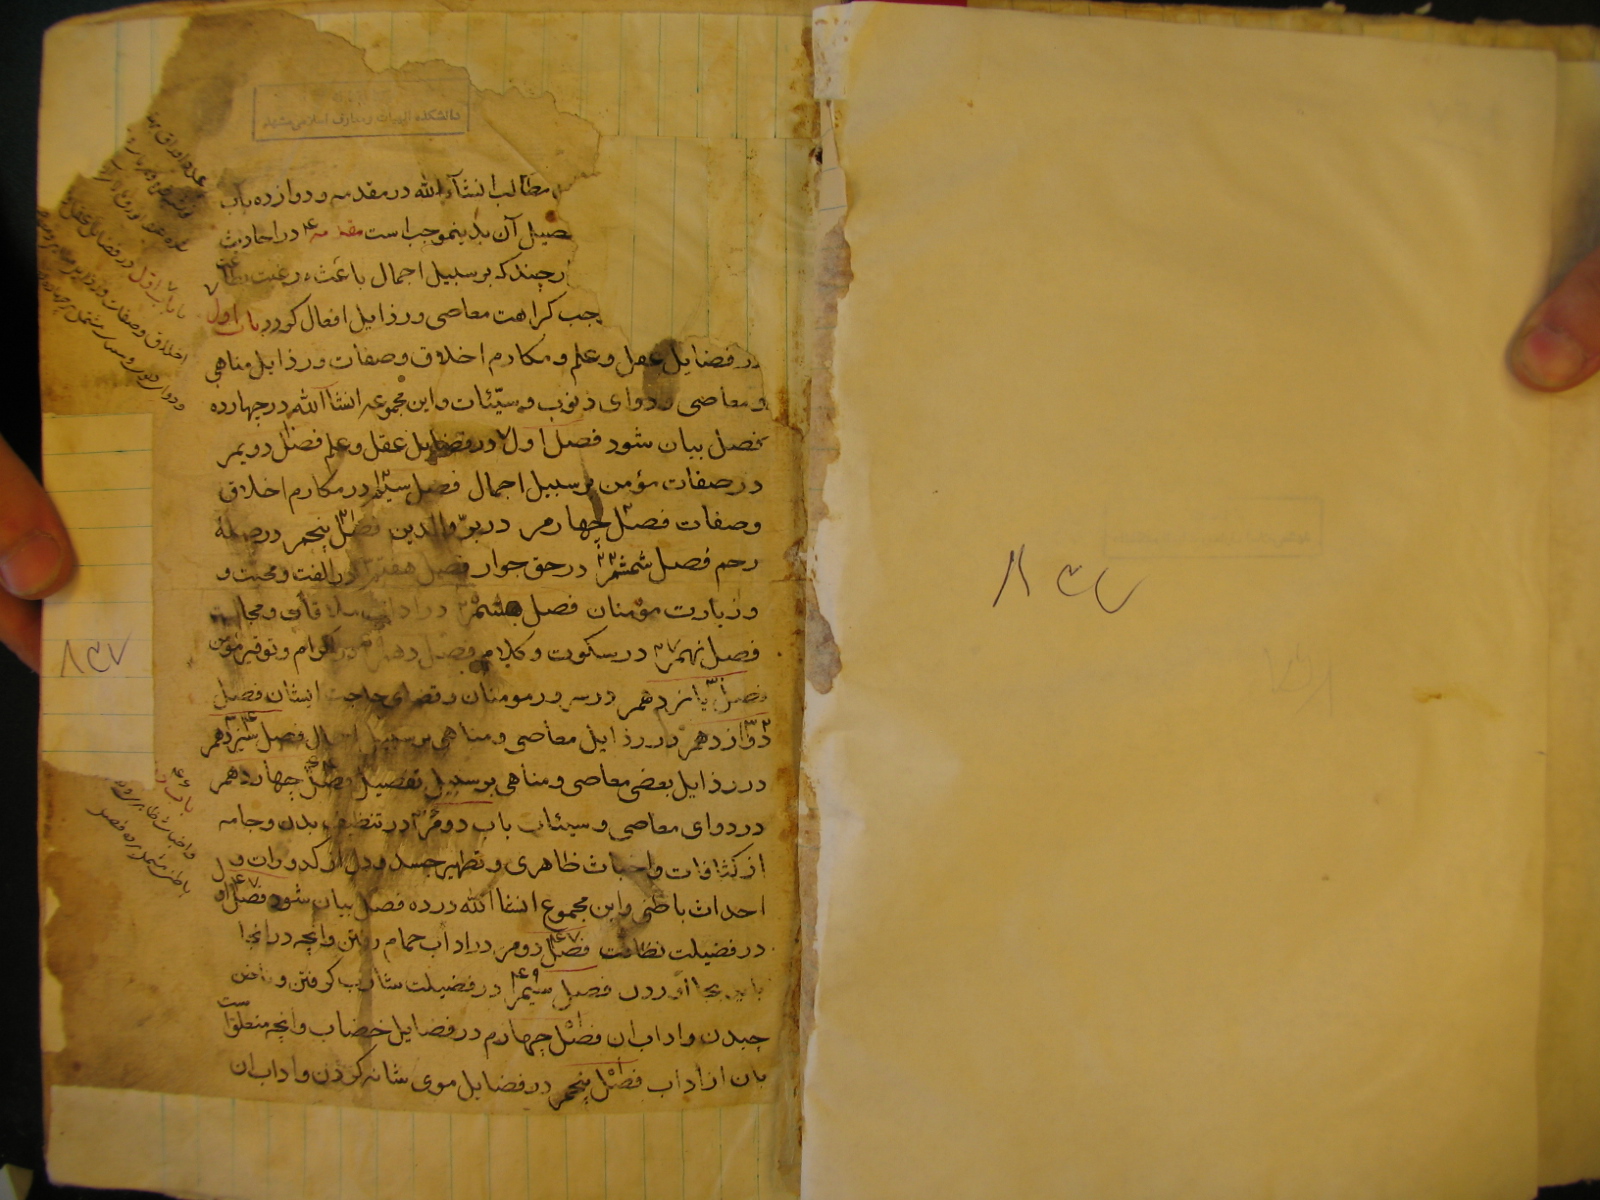 ۸۳۷
دانشکده الهیات و معارف اسلامی مشهد
مطالب انشآء الله در مقدمه و دوازده باب
صیل آن بدینموجب است مقدمه در احادیث
چند که بر سبیل اجمال باعث رغبت
جب کراهت معاصی و رذایل افعال کردد باب اول
در فضایل عقل و علم و مکارم اخلاق و صفات و رذایل مناهی
و معاصی و دوای ذنوب و سیّئات و این مجموعه انشا الله در چهارده
فصل بیان شود فصل اول در فضایل عقل و علم فصل دویم
در صفات مؤمن بر سبیل اجمال فصل سیّم در مکارم اخلاق
و صفات فصل چهارم در برّ والدین فصل پنجم در صلهٔ
رحم فصل ششم ۲۳ در حق جوار فصل هفتم در الفت و محبت و
و زیارت مؤمنان فصل هشتم در اداب ملاقات و
فصل نهم ۲۷ در سکوت و کلام فصل دهم در اکرام و توقیر مؤمن
فصل یازدهم در سرور مومنان و قضای حاجت ایشان فصل
دوازدهم در رذایل معاصی و مناهی بر سبیل اجمال فصل سیزدهم
در رذایل بعضی معاصی و مناهی بر سبیل تفصیل فصل چهاردهم
در دوای معاصی و سیئات باب دوم در تنظیف بدن و جامه
از کثافات و اخباث ظاهری و تطهیر جسد و دل از کدورات و
احداث باطنی و این مجموع انشا الله در ده فصل بیان شود فصل اول ۴۷
در فضیلت نظافت فصل دوم ۴۷ در اداب حمام رفتن و انچه در انجا
باید بجا آوردن فصل سیّم ۴۹ در فضیلت شارب کرفتن و ناخن
چیدن و اداب ان فصل چهارم در فضایل خضاب و انچه متعلق است
بان از اداب فصل پنجم در فضایل موی شانه کردن و اداب ان
باب اول در فضایل عقل
اخلاق و صفات
۸۳۷